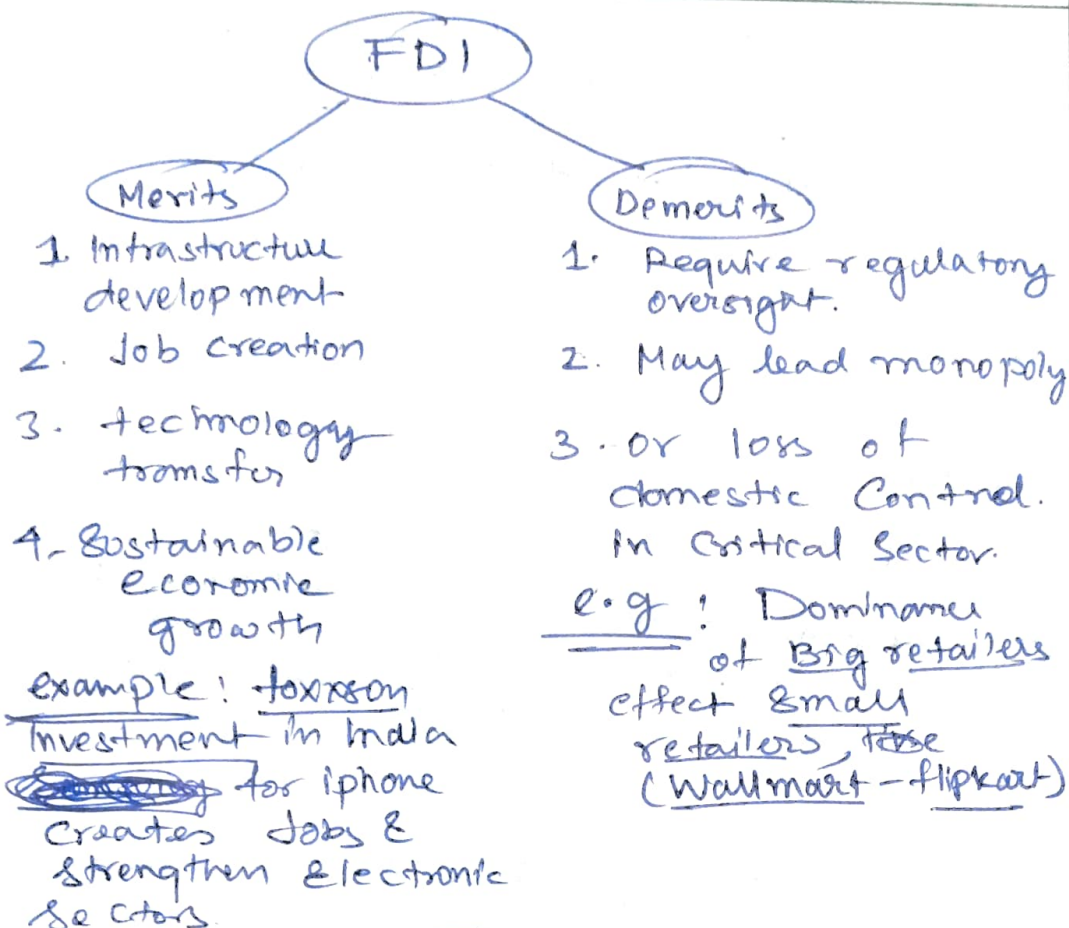 FDI
Merits
1. Infrastructure
development
2. Job creation
3. technologgy
transfer
4. Sustainable
economic
growth
example: foxxson
Investment in India
for iphone
Creates Jobs &
strengthen Electronic
Sectors
Demerits
1. Require regulatory
oversight.
2. May lead monopoly
3. or loss of
domestic Control.
in Critical Sector.
e.g : Dominance
of Big retailers
effect Small
retailers,
(Wallmart - flipkart)